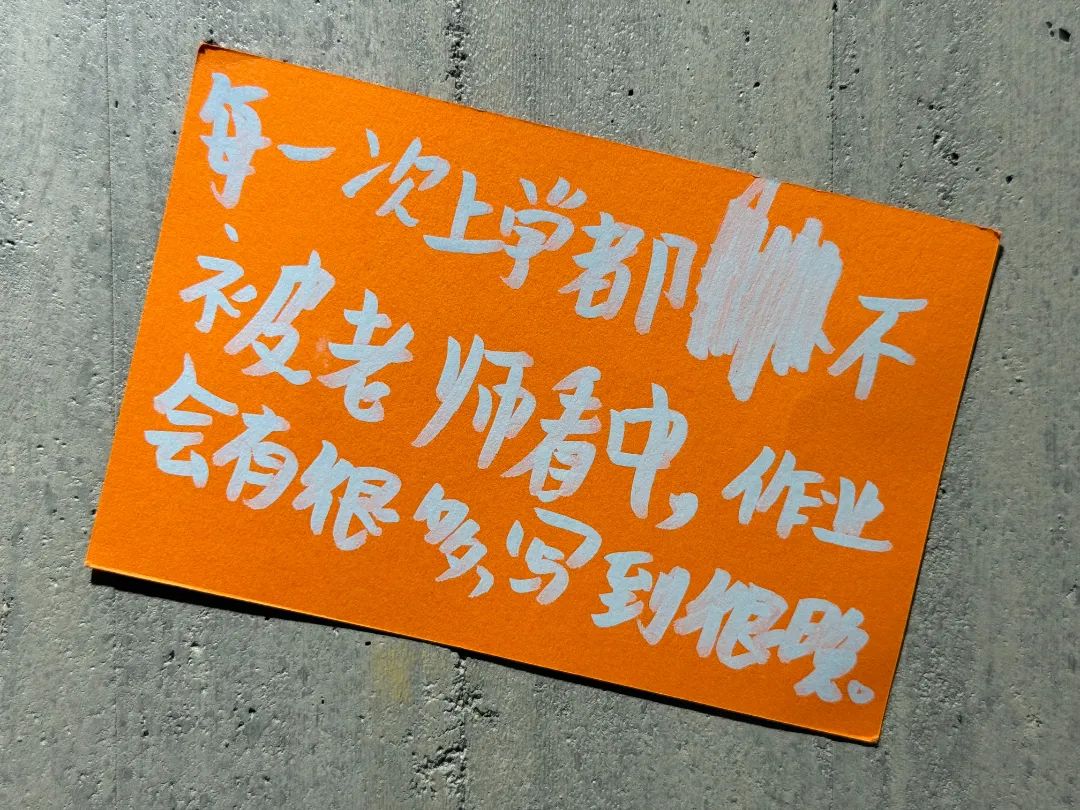 每一次上学都不
被老师看中，作业
会有很多，写到很晚。